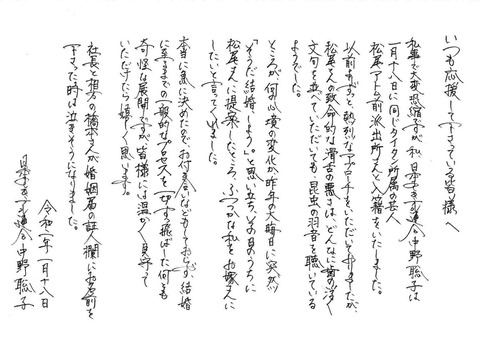 いつも応援して下さっている皆様へ
私事で大変恐縮ですが、私、日本エレキテル連合中野聡子は
一月十八日に同じタイタン所属の芸人
松尾アトム前派出所さんと入籍をいたしました。
以前よりずっと、熱烈なアプローチをいただいておりましたが、
松尾さんの致命的な滑舌の悪さは、どんなに歯の浮く
文句を並べていただいても、昆虫の羽音を聴いている
ようでした。
ところが、何の心境の変化か昨年の大晦日に突然
「そうだ結婚しよう。」と思い立ち、その日のうちに
松尾さんに提案したところ、ふつつかな私をお嫁さんに
したいと言ってくれました。
本当に急に決めたため、お付き合いなどもしておらず、結婚
に至るまでの一般的なプロセスを一切すっ飛ばした何とも
奇怪な展開ですが、皆様には温かく見守って
いただけたら嬉しく思います。
社長と相方の橋本さんが婚姻届の証人欄にお名前を
下さった時は泣きそうになりました。
令和二年一月十八日
日本エレキテル連合 中野聡子